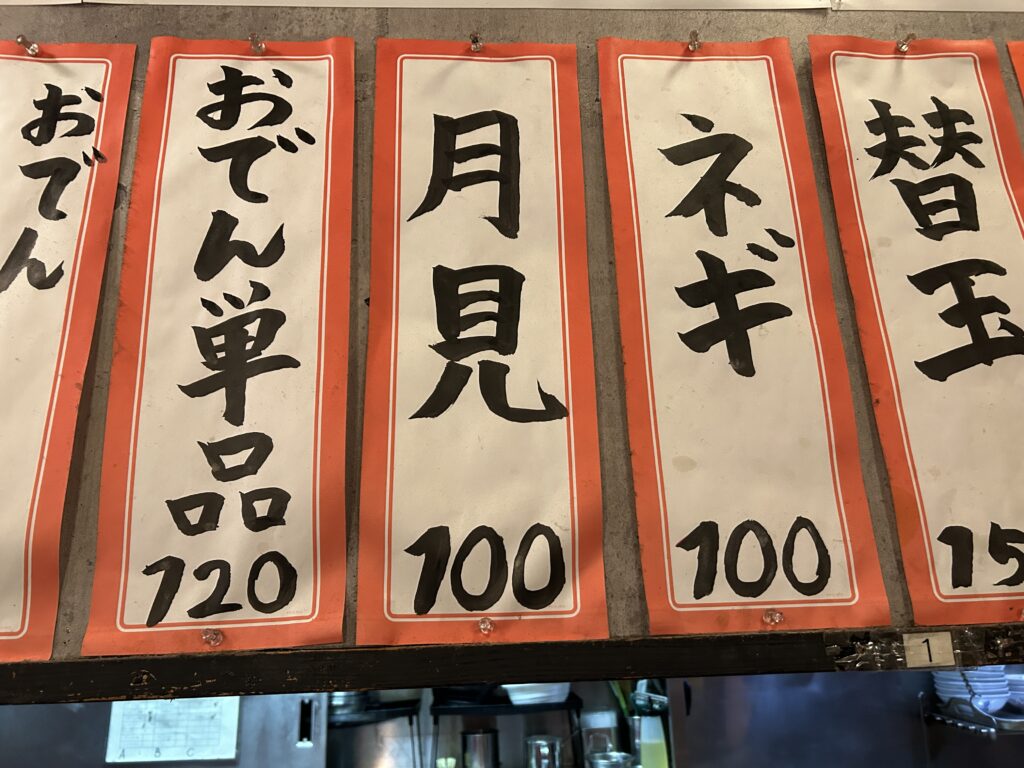 おでん
おでん単品
120
月見
100
ネギ
100
替玉
15
1
A B C